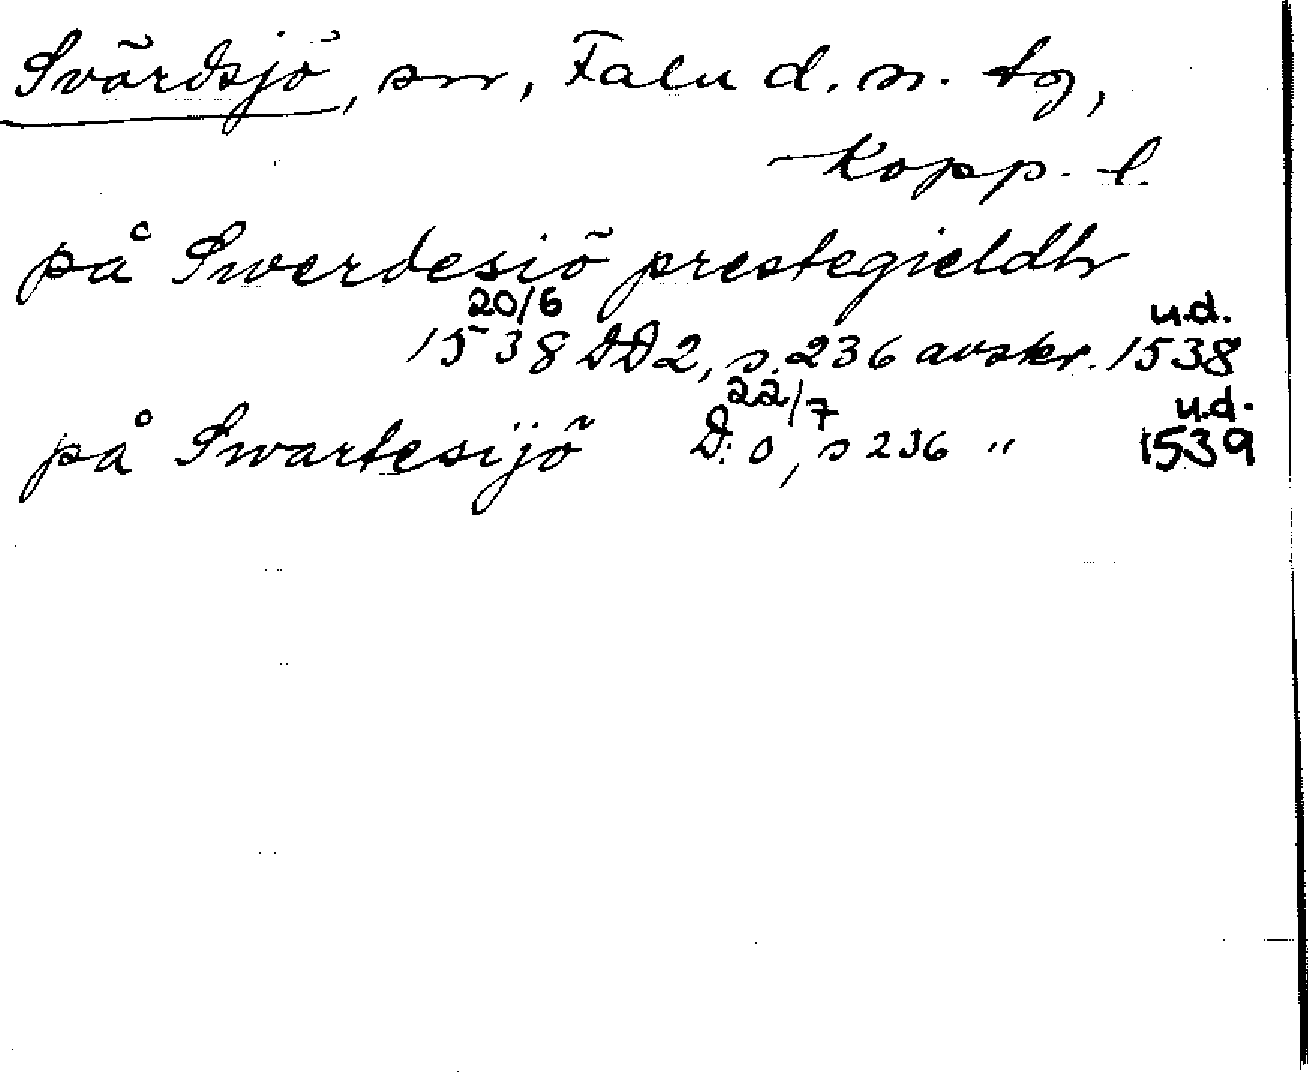 Svärdsjö, sn, Falu d. n. tg,
Kopp. l.
på Swerdesiö prestegieldh
20/6 u.d.
1538 DD2, s. 236 avskr. 1538
22/7 u.d.
på Swartesijö D:o, s 236 " 1539